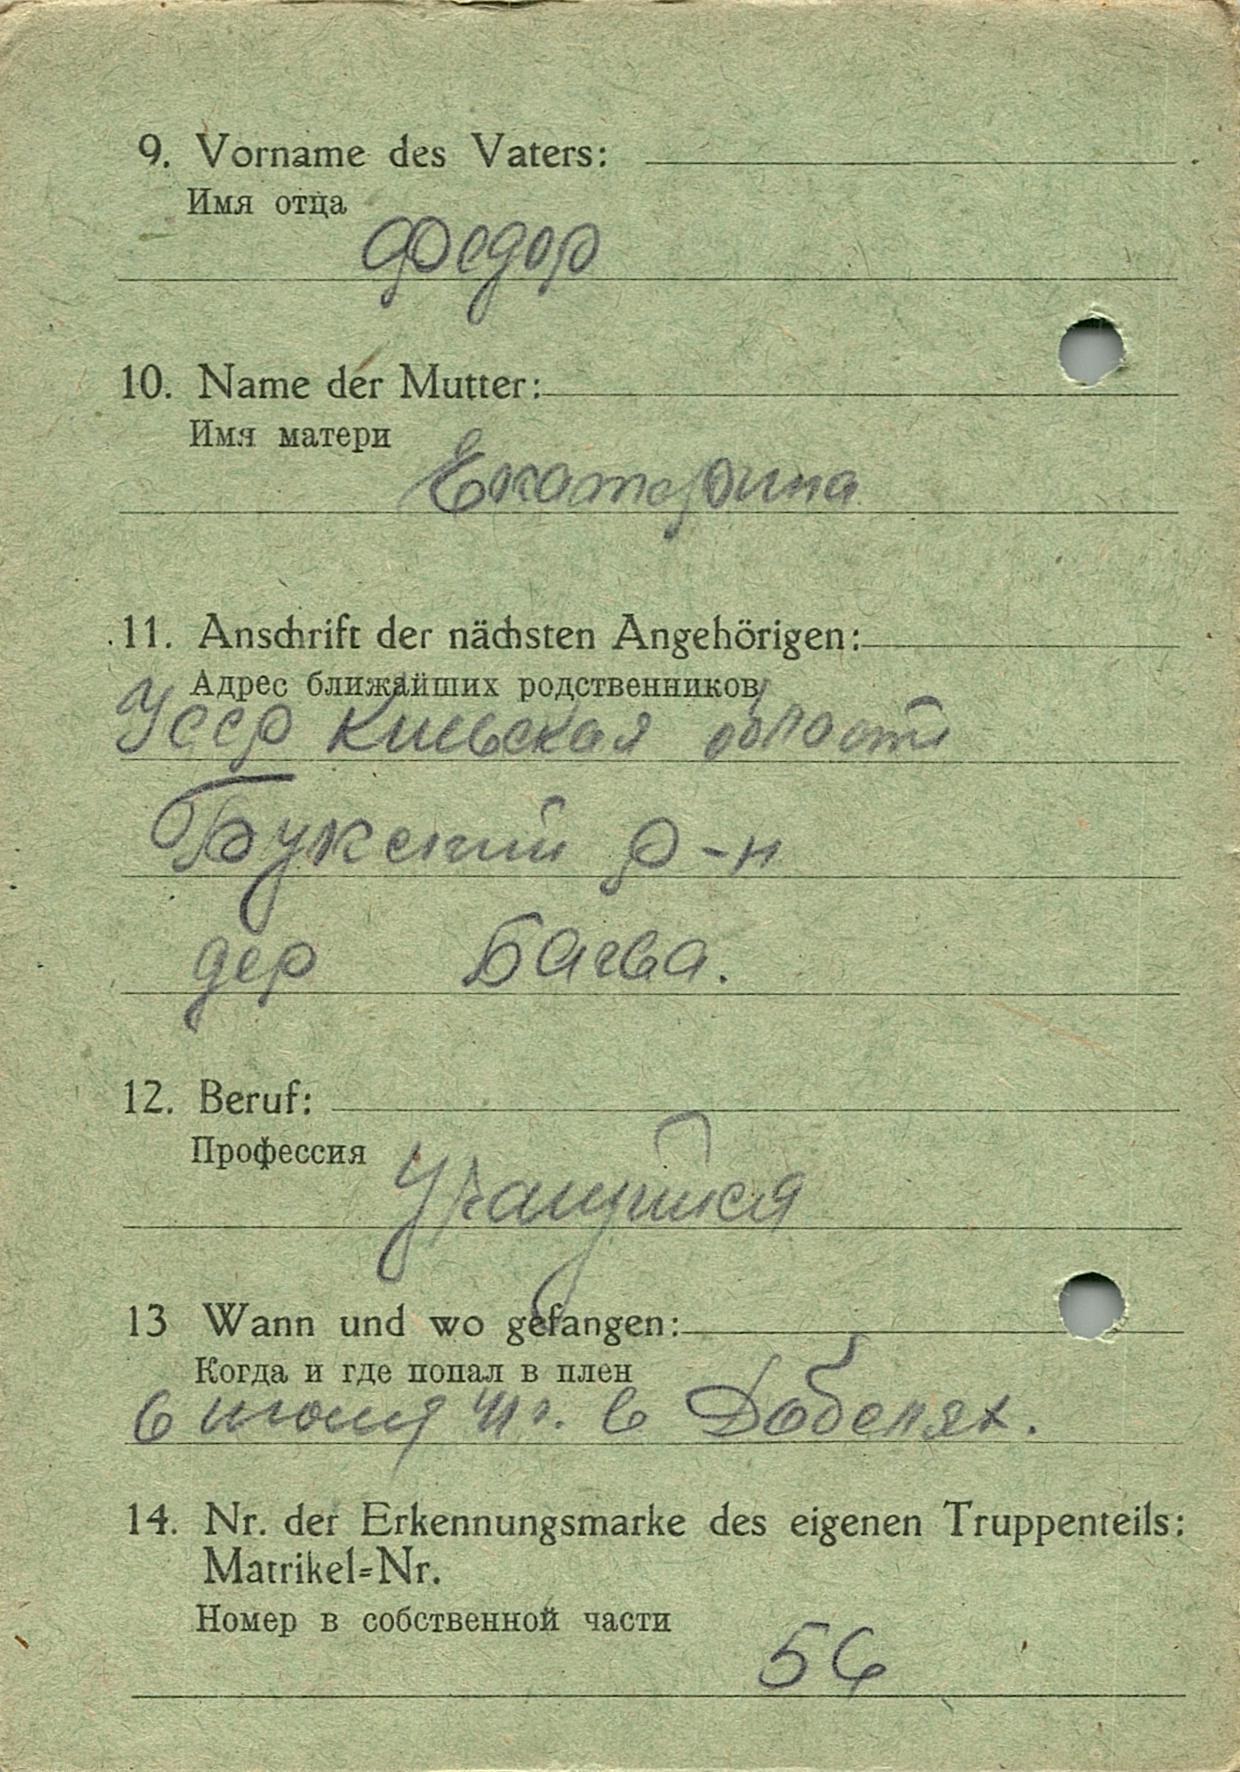 9. Vorname des Vaters:
Имя отца
Федор
10. Name der Mutter:
Имя матери
Екатерина
11. Anschrift der nächsten Angehörigen:
Адрес ближайших родственников
УССР Киевская область
Букский р-н
дер Багва.
12. Beruf:
Профессия
Учащийся
13 Wann und wo gefangen:
Когда и где попал в плен
6 июля 41г. в Добелях.
14. Nr. der Erkennungsmarke des eigenen Truppenteils:
Matrikel=Nr.
Номер в собственной части
56